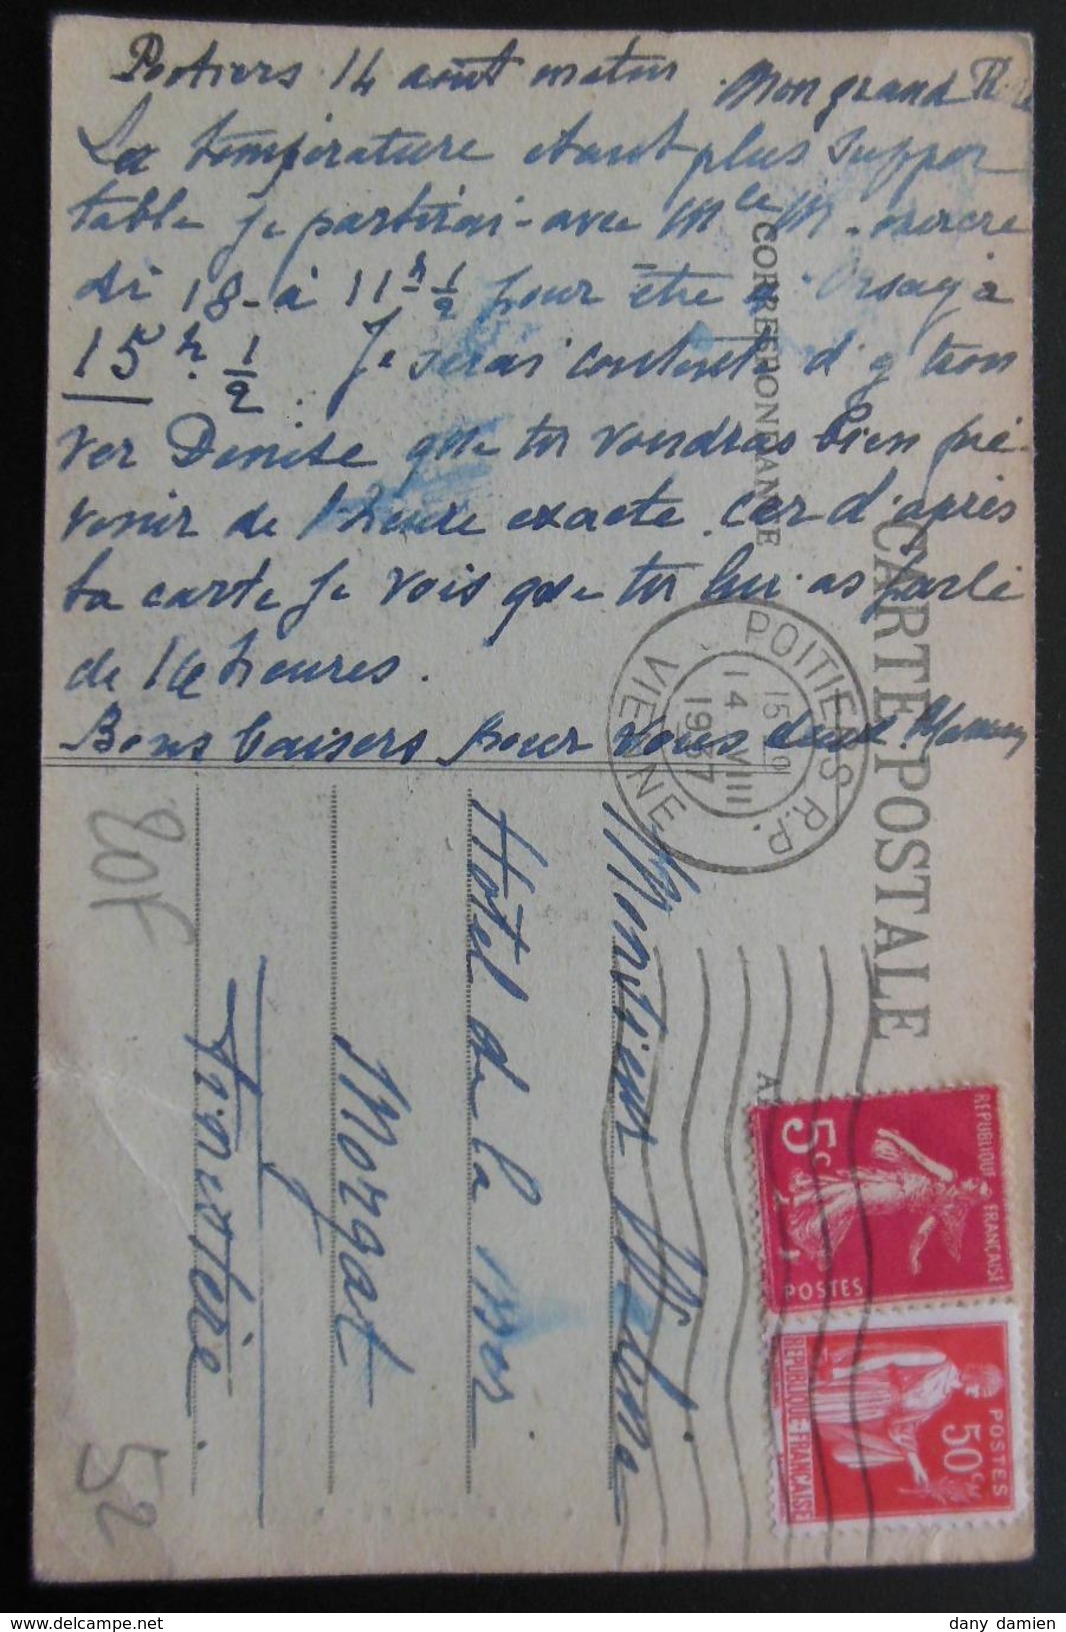 Poitiers 14 août matin. Mon grand
La température étant plus suppor
table je partirai - avec Mlle M - mercre
di 18 - à 11h 1/2 pour être à Orsay à
15h. 1/2. Je serai contente d'y trou
ver Denise que tu voudras bien pré
venir de l'heure exacte. Car d'après
ta carte je vois que tu lui as parlé
de 16 heures.
Bons baisers pour vous deux. Maman
CARTE POSTALE
CORRESPONDANCE
POITIERS R.P.
VIENNE
14 VIII
1937
Monsieur
Hôtel de la Mer
Morgat
Finistère.
REPUBLIQUE FRANÇAISE
5c
POSTES
POSTES
50c
REPUBLIQUE-FRANÇAISE
20F
52
delcampe.net
dany damien